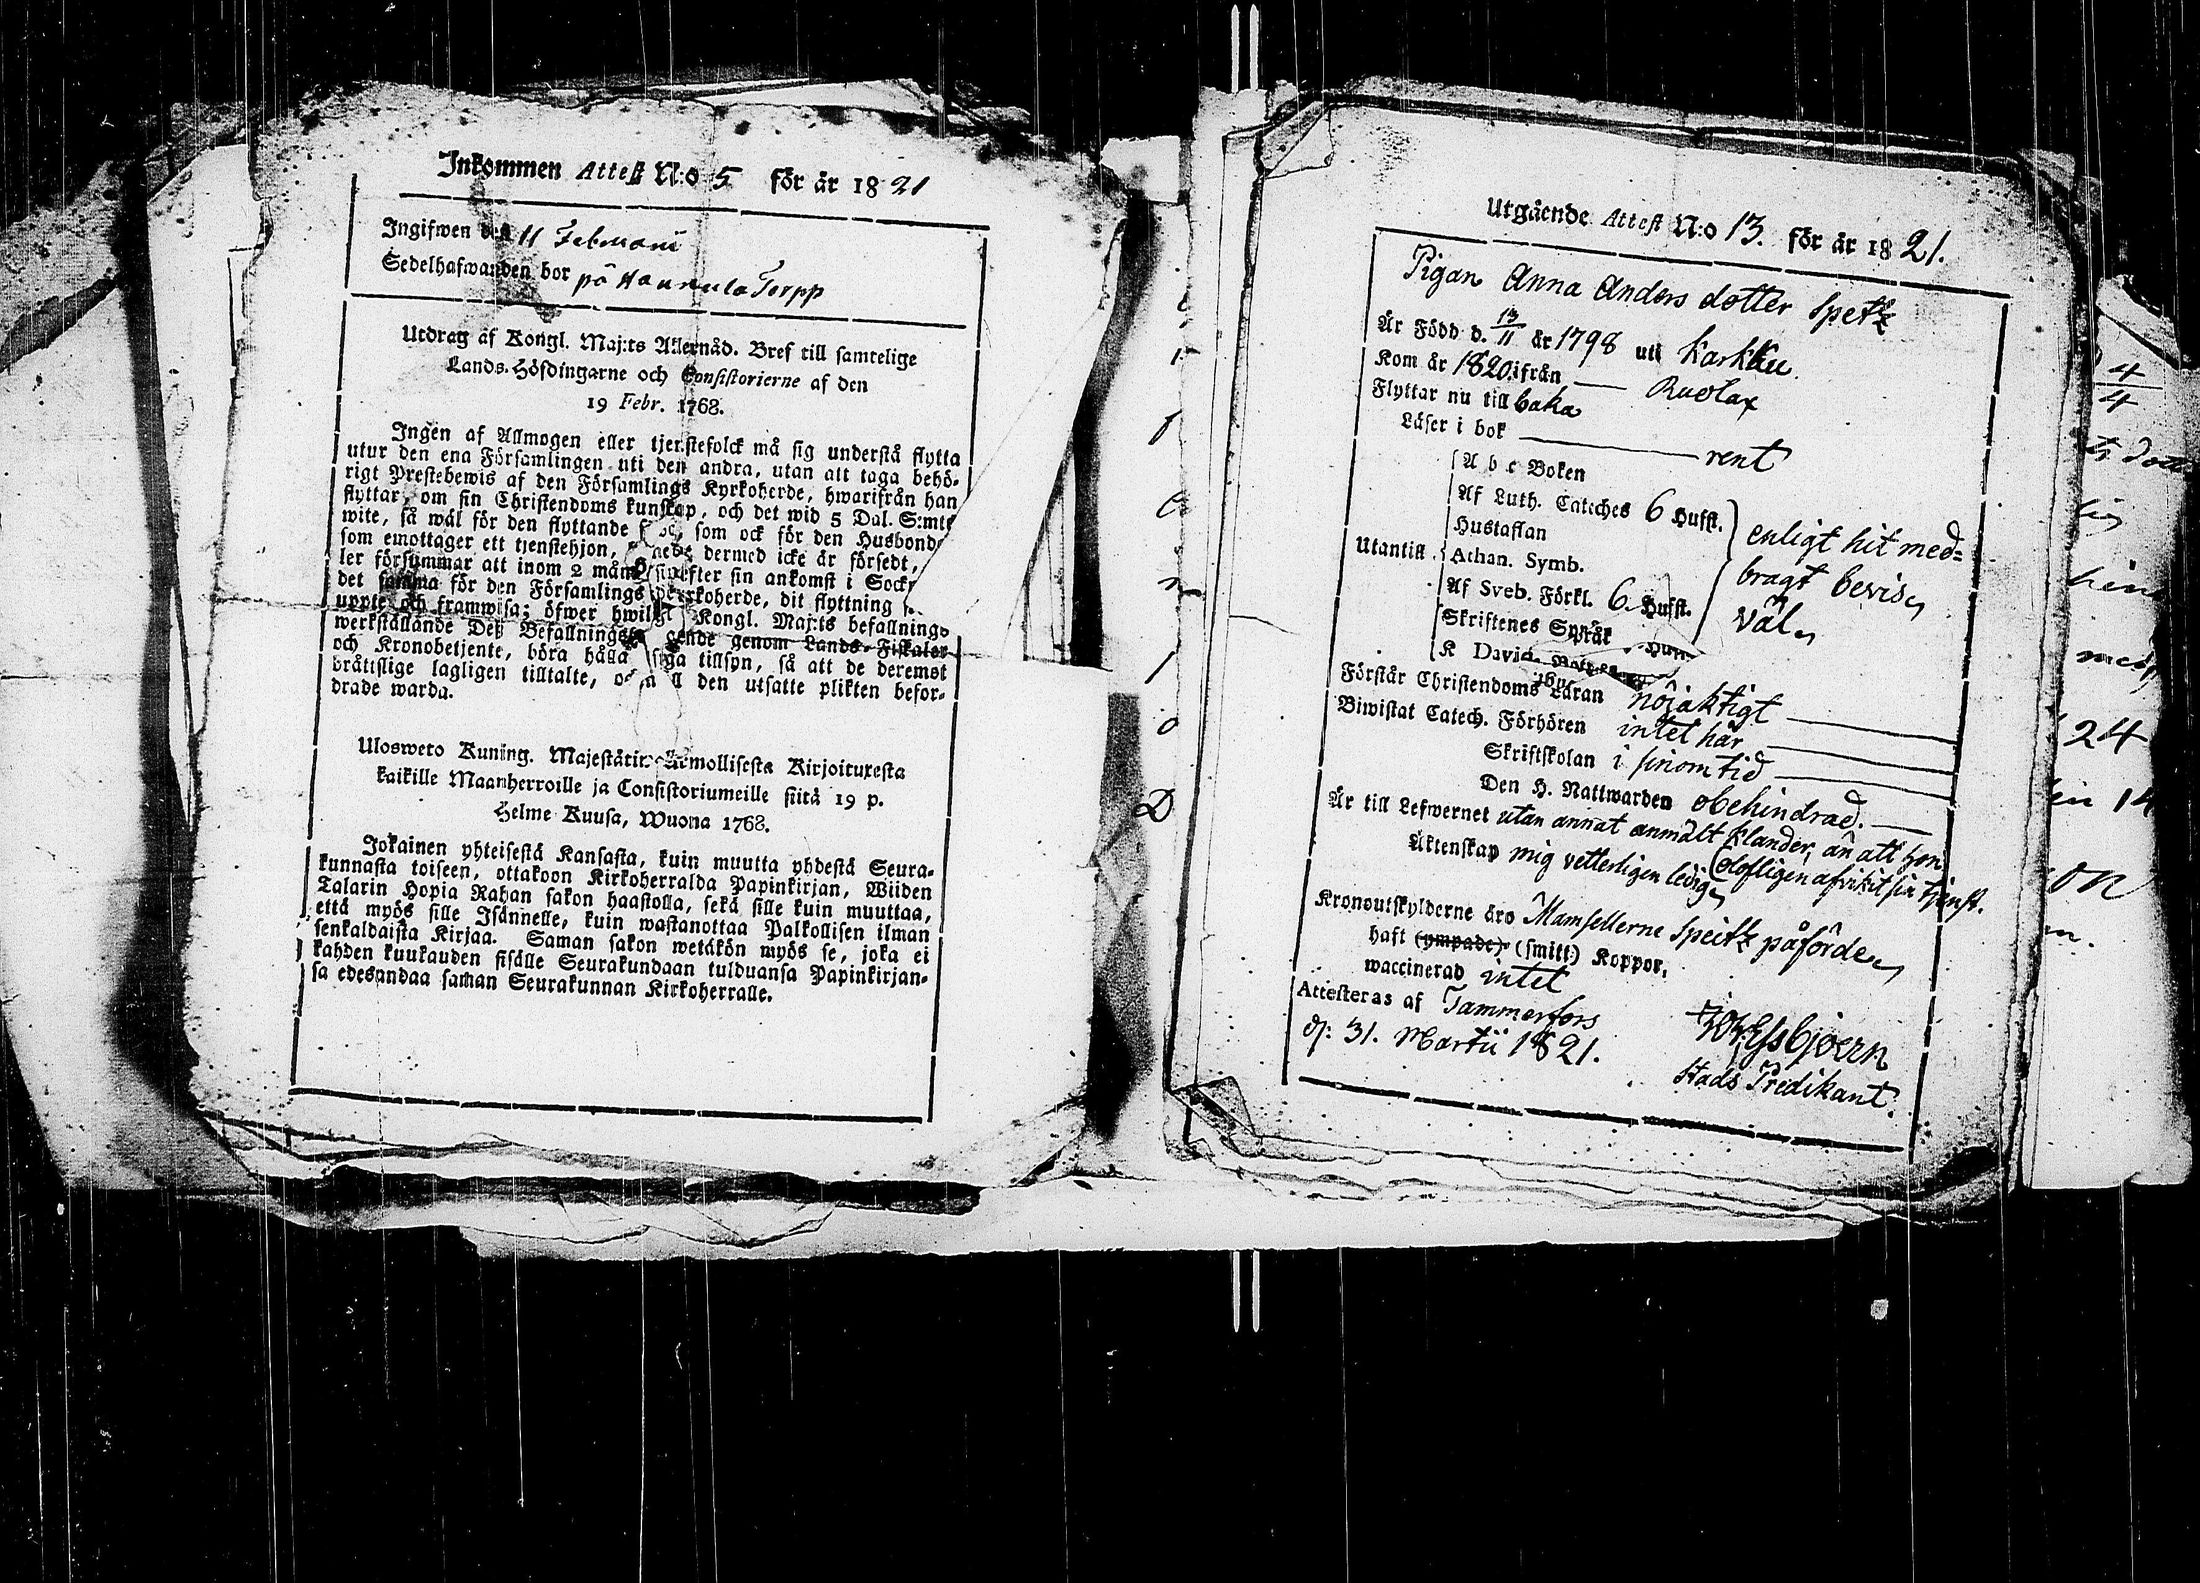 Inkommen Attest N:o 5 för år 1821
Ingifwen den 11 Februarii
Sedelhafwanden bor på Haunula Torpp
Utdrag af Kongl. Maj:ts Allernåd. Bref till samtelige
Lands-Höfdingarne och Consistorierne af den
19 Febr. 1768.
Ingen af Allmogen eller tjenstefolck må sig understå flytta
utur den ena Församlingen uti den andra, utan att taga behö-
rigt Prestebewis af den Församlings Kyrkoherde, hwarifrån han
flyttar, om sin Christendoms kunskap, och det wid 5 Dal. S:mts
wite, så wäl för den flyttande som ock för den Husbonde
som emottager ett tjenstehjon, dermed icke är försedt,
ler försummar att inom 2 mån efter sin ankomst i Sock
det samma för den Församlings Kyrkoherde, dit flyttning
uppte och framwisa; öfwer hwilket Kongl. Maj:ts befallnings
werkställande Deß Befallnings genom Lands-Fiskaler
och Kronobetjente, böra hålla tillsyn, så att de deremot
bråttslige lagligen tilltalte, och den utsatte plikten befor-
drade warda.
Ulosweto Kuning. Majestätin Armollisesta Kirjoituxesta
kaikille Maanherroille ja Consistoriumeille siitä 19 p.
Helme Kuusa, Wuona 1768.
Jokainen yhteisestä Kansasta, kuin muutta yhdestä Seura-
kunnasta toiseen, ottakoon Kirkoherralda Papinkirjan, Wiiden
Talarin Hopia Rahan sakon haastolla, sekä sille kuin muuttaa,
että myös sille Isännelle, kuin wastanottaa Palkollisen ilman
senkaldaista Kirjaa. Saman sakon wetäkön myös se, joka ei
kahden kuukauden sisälle Seurakundaan tulduansa Papinkirjan-
sa edesandaa saman Seurakunnan Kirkoherralle.
Utgående Attest N:o 13. för år 1821.
Pigan Anna Anders dotter Speitz
Är Född d. 13/11 år 1798 uti Karkku
Kom år 1820 ifrån — Ruolax
Flyttar nu till baka
Läser i bok — rent
A b c Boken
Af Luth. Cateches 6 Hufst.
Hustaflan
Utantill Athan. Symb.
Af Sveb. Förkl. 6 Hufst.
Skriftenes Språk
K David
enligt hit med-
bragt bevis
väl
Förstår Christendoms Läran nöjaktigt
Biwistat Catech. Förhören intet här
Skriftskolan i sinom tid
Den H. Nattwarden obehindrad.
Är till Lefwernet utan annat anmält klander, än att hon
Äktenskap mig vetterligen ledig olofligen afvikit sin tjenst.
Kronoutskylderne äro Mamsellerne Speitz påförde
haft (ympade) (smitt) Koppor,
waccinerad intet
Attesteras af Tammerfors
d: 31. Martii 1821.
Essbjoern
Stads Predikant.